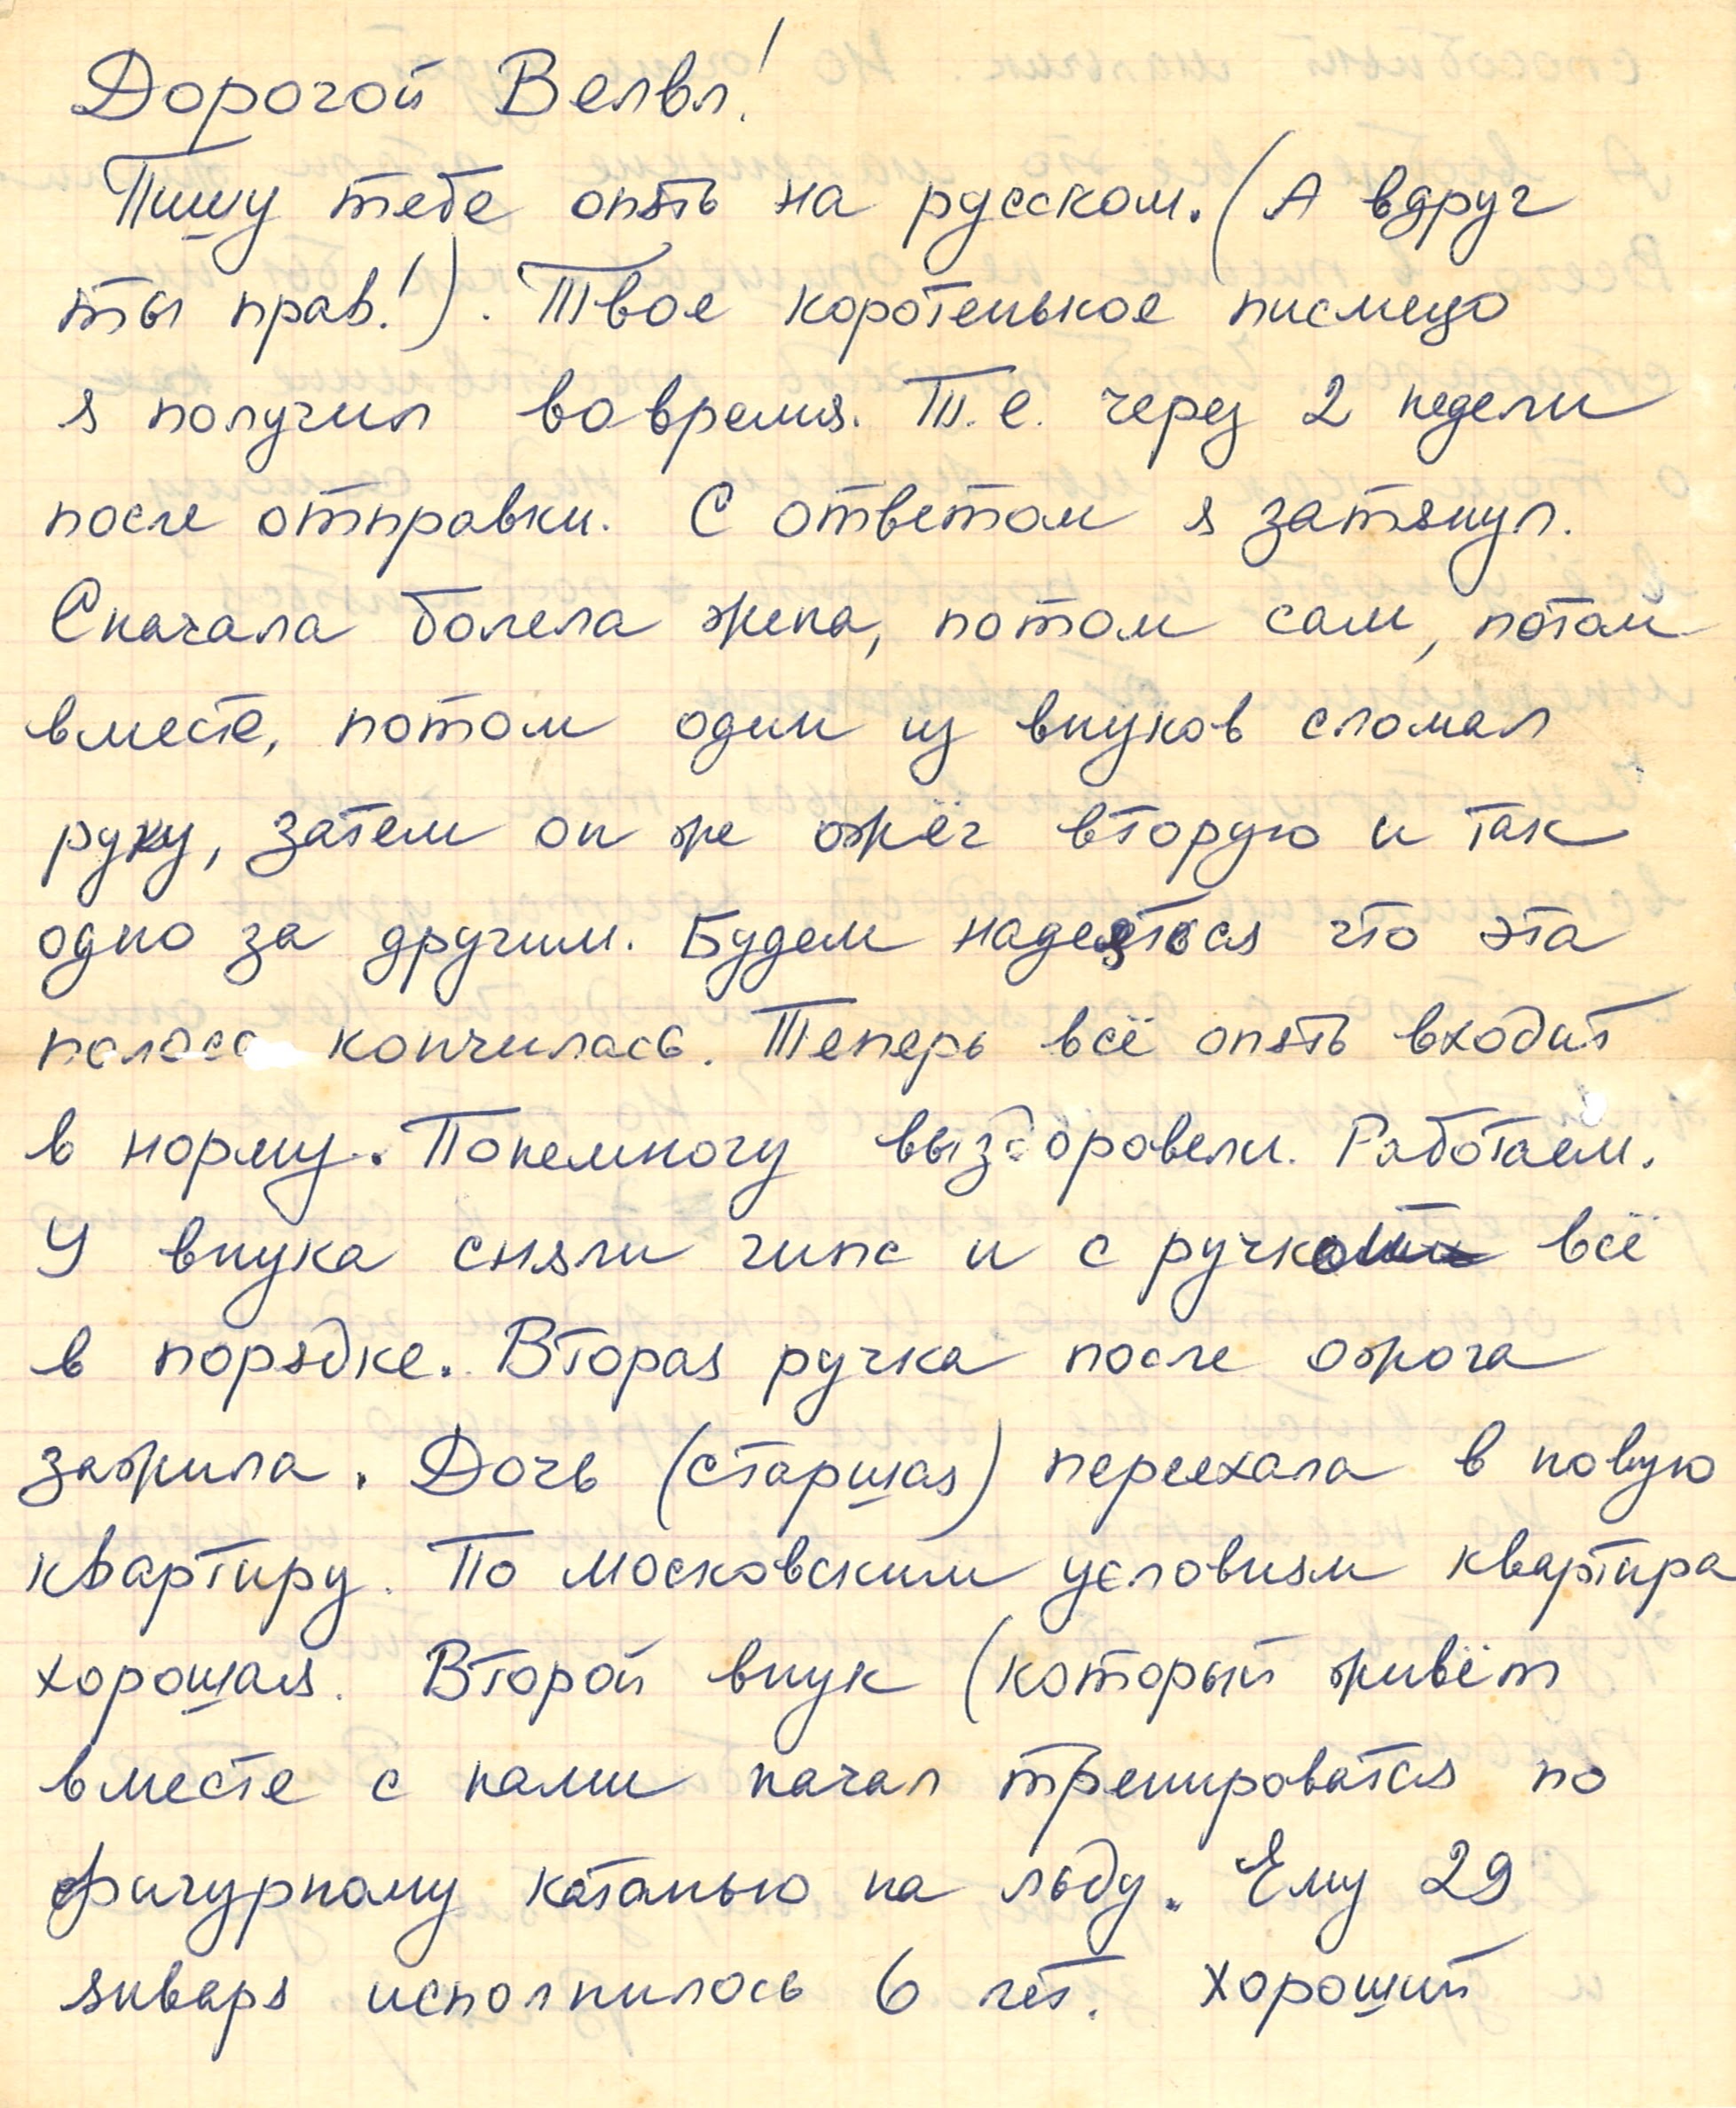 Дорогой Велвл!
Пишу тебе опять на русском. (А вдруг
ты прав!). Твое коротенькое писмецо
я получил вовремя. Т.е. через 2 недели
после отправки. С ответом я затянул.
Сначала болела жена, потом сам, потом
вместе, потом один из внуков сломал
руку, затем он же ожёг вторую и так
одно за другим. Будем надеятся что эта
полоса кончилась. Теперь всё опять входит
в норму. Понемногу выздоровели. Работаем.
У внука сняли гипс и с ручкой всё
в порядке. Вторая ручка после ожога
зажила. Дочь (старшая) переехала в новую
квартиру. По московским условиям квартира
хорошая. Второй внук (который живёт
вместе с нами начал тренироватся по
фигурному катанью на льду. Ему 29
января исполнилось 6 лет. Хороший